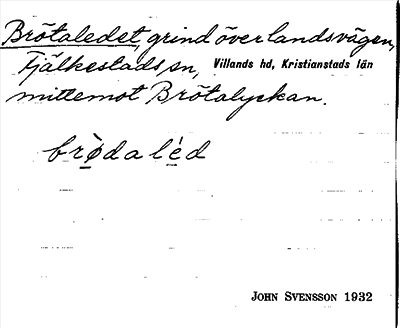 Brötaledet, grind över landsvägen,
Fjälkestads sn, Villands hd, Kristianstads län
mittemot Brötalyckan.
brø̀daléd
JOHN SVENSSON 1932